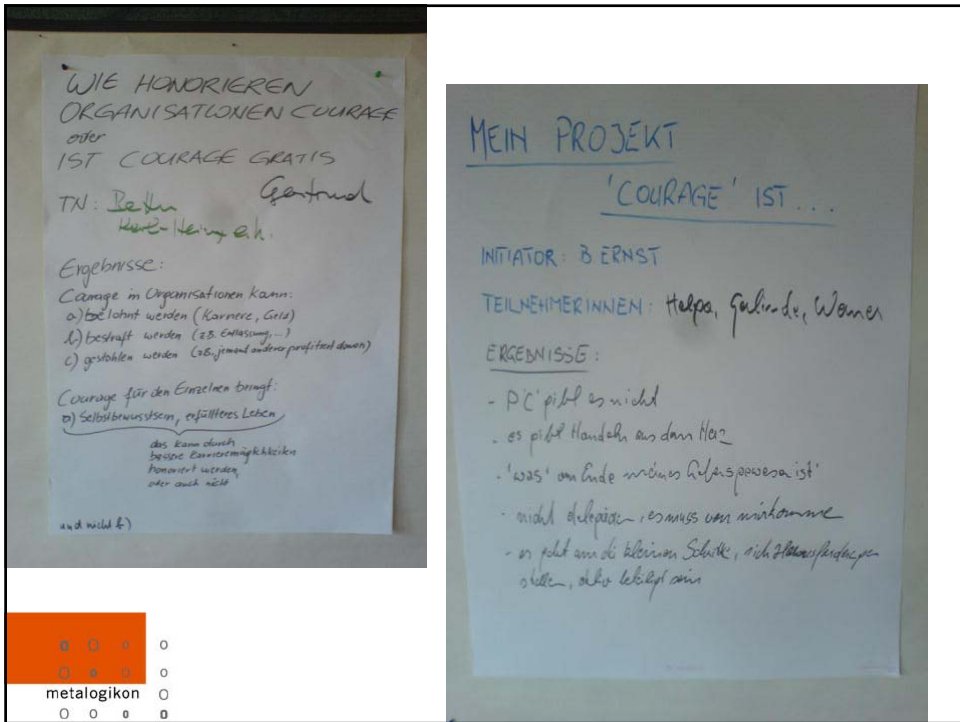 WIE HONORIEREN
ORGANISATIONEN COURAGE
oder
IST COURAGE GRATIS
TN: Gertrud
Karl-Heinz
Ergebnisse:
Courage in Organisationen kann:
a) belohnt werden (Karriere, Geld)
b) bestraft werden (z.B. Entlassung, ...)
c) gestohlen werden (z.B. jemand anderer profitiert davon)
Courage für den Einzelnen bringt:
a) Selbstbewusstsein, erfüllteres Leben
das kann durch
bessere Karrieremöglichkeiten
honoriert werden,
oder auch nicht
und nicht b)
MEIN PROJEKT
'COURAGE' IST ...
INITIATOR: B ERNST
TEILNEHMERINNEN: Helga, Gerlinde, Werner
ERGEBNISSE:
- 'PC' gibt es nicht
- es gibt Handeln aus dem Herz
- 'was' am Ende meines Lebens gewesen ist'
- nicht delegieren, es muss von mir komme
- es geht um die kleinen Schritte, sich Herausforderungen
stellen, aktiv beteiligt sein
metalogikon